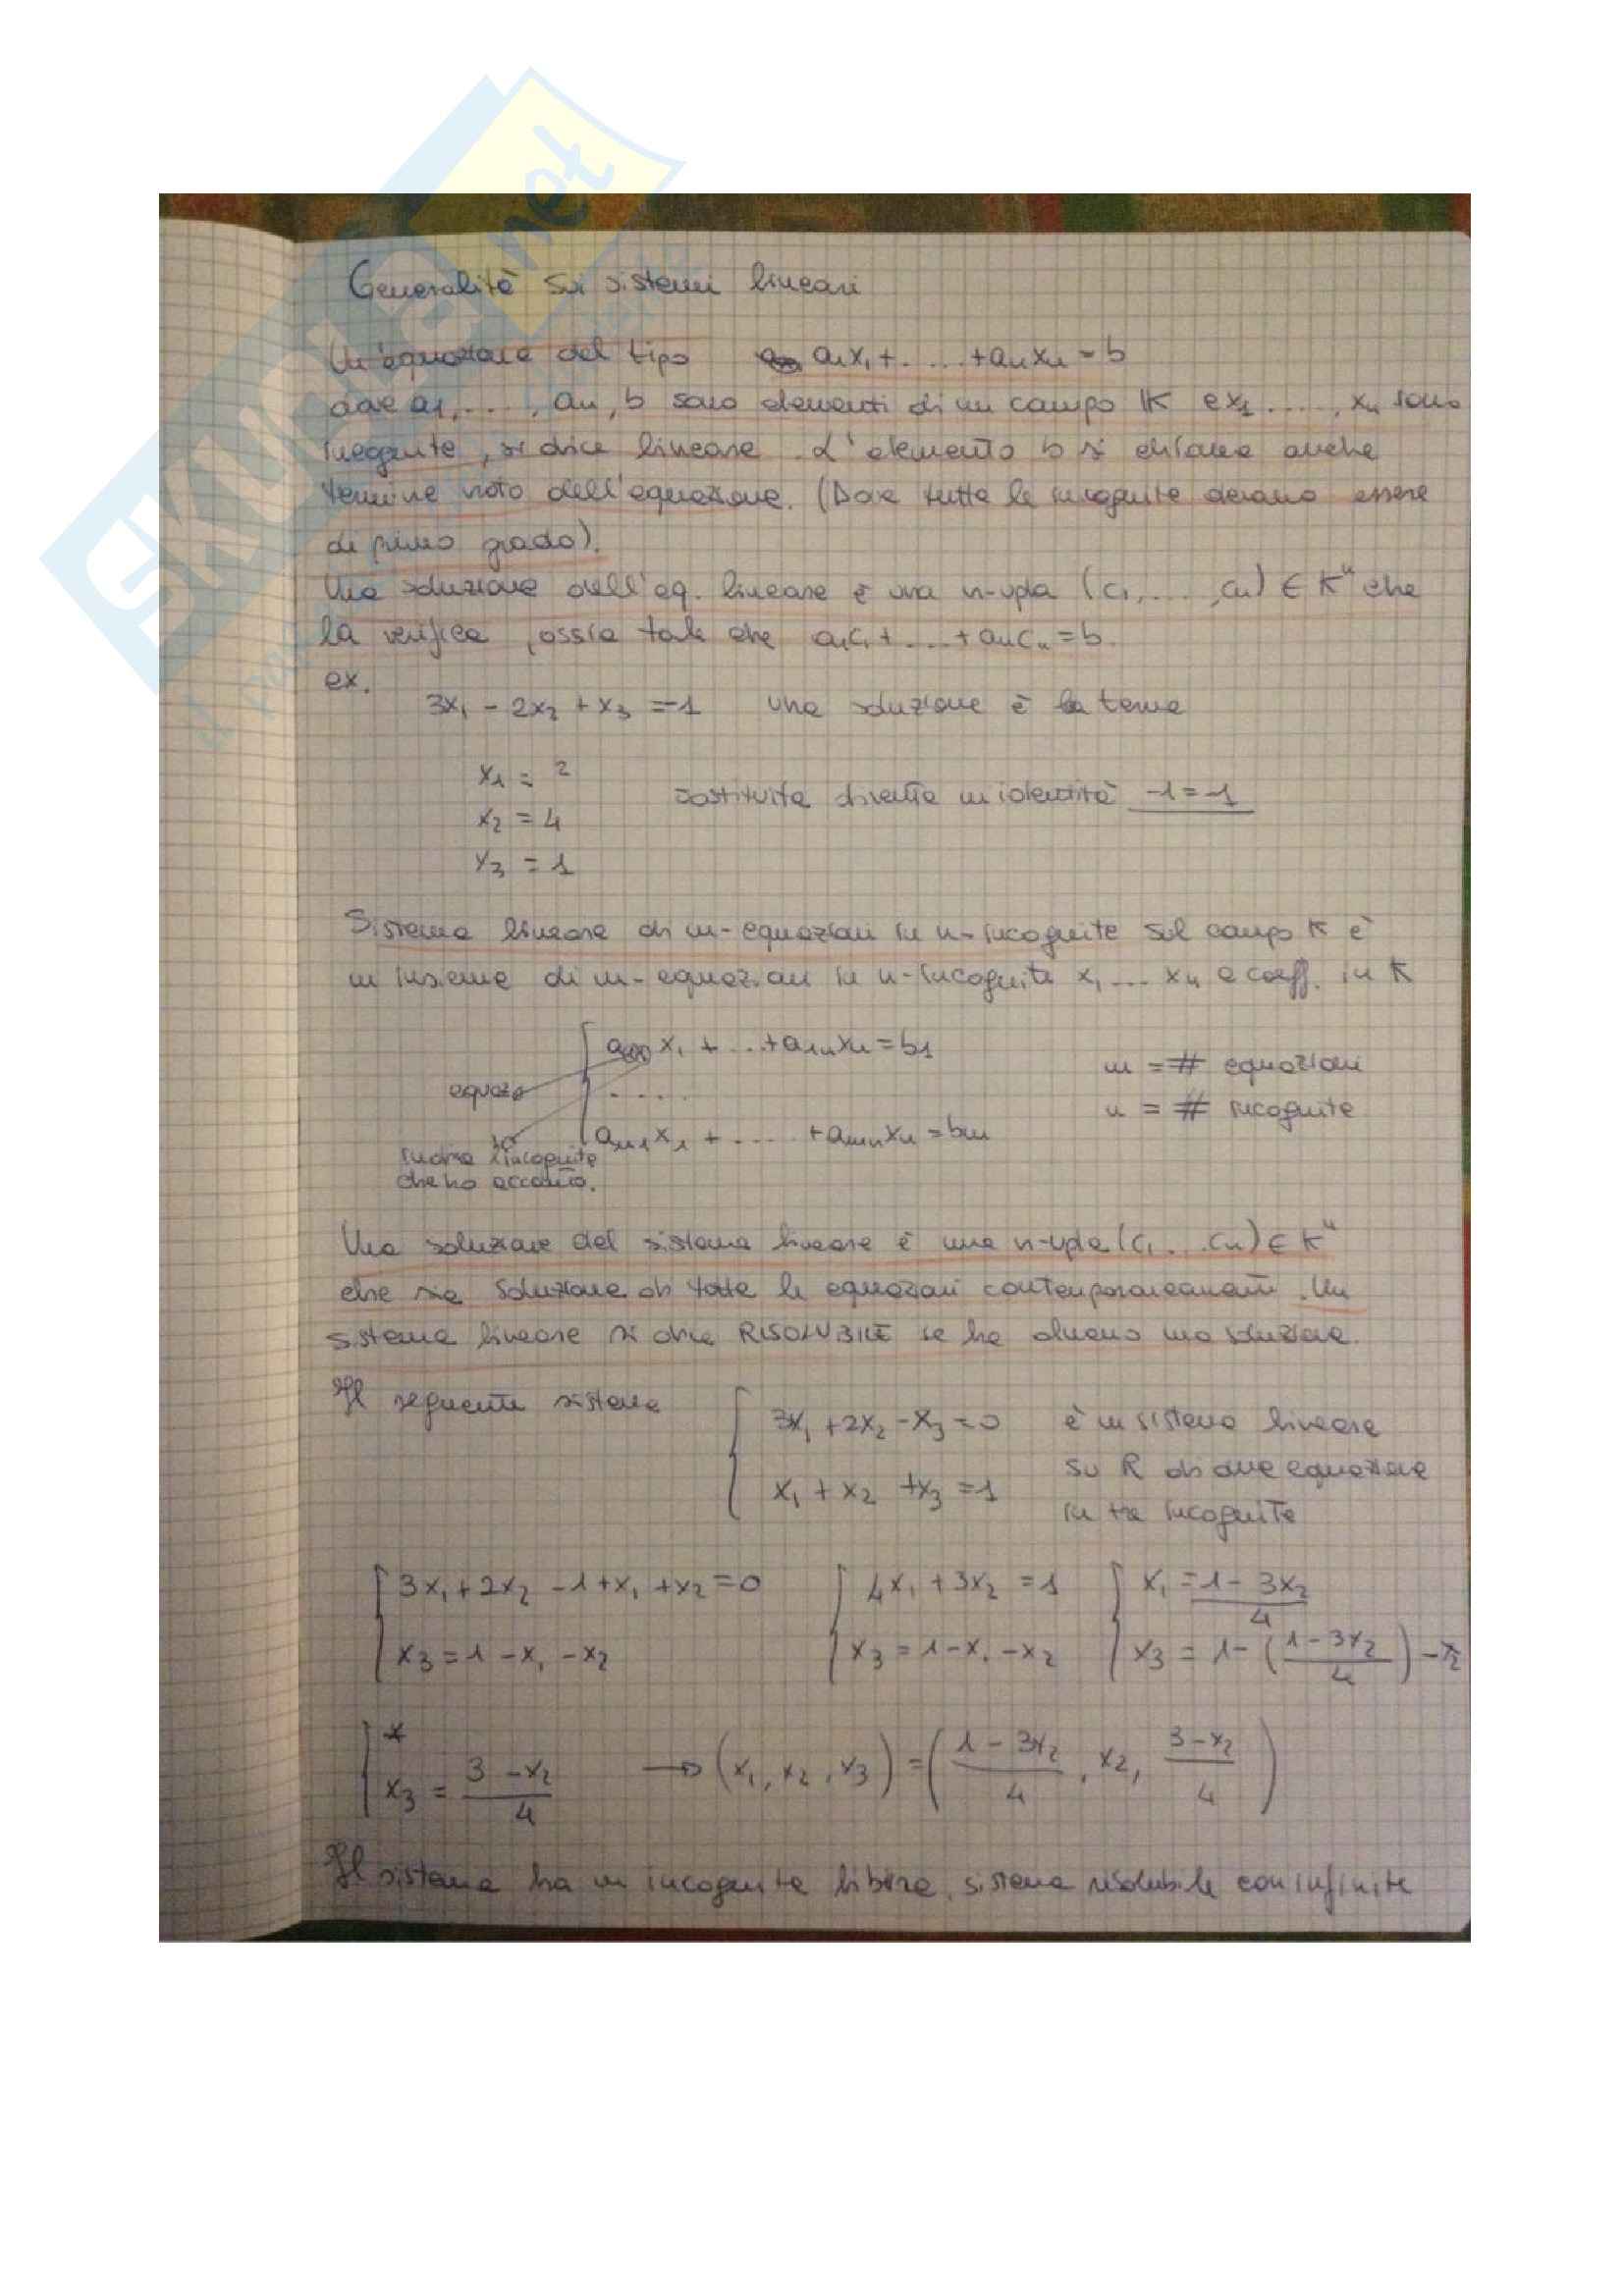 SKUOLA.net
Generalità sui sistemi lineari
Un'equazione del tipo a₁x₁+.....+aₙxₙ = b
dove a1,...., an, b sono elementi di un campo K e x1....., xn sono
incognite, si dice lineare. L'elemento b si chiama anche
termine noto dell'equazione. (Dove tutte le incognite devono essere
di primo grado).
Una soluzione dell'eq. lineare è una n-upla (c₁,...,cₙ) ∈ Kⁿ che
la verifica, ossia tale che a₁c₁+....+aₙcₙ=b.
ex.
3x₁ - 2x₂ + x₃ =-1 una soluzione è la terna
x₁ = 2
x₂ = 4 sostituita diventa un'identità -1=-1
x₃ = 1
Sistema lineare di m-equazioni in n-incognite sul campo K è
un insieme di m-equazioni in n-incognite x₁.... xₙ e coeff. in K
x₁ + ...+a₁ₙxₙ=b₁
m = # equazioni
....
n = # incognite
aₘ₁x₁ + ..... +aₘₙxₙ=bₘ
indica incognite
che ho accanto.
Una soluzione del sistema lineare è una n-upla (c₁...cₙ) ∈ Kⁿ
che sia soluzione di tutte le equazioni contemporaneamente. Un
sistema lineare si dice RISOLUBILE se ha almeno una soluzione.
Il seguente sistema 3x₁+2x₂-x₃=0 è un sistema lineare
su R di due equazione
x₁+x₂ +x₃=1 in tre incognite
3x₁+2x₂-1+x₁+x₂=0 4x₁+3x₂=1 x₁=1-3x₂/4
x₃=1-x₁-x₂ x₃=1-x₁-x₂ x₃=1-(1-3x₂/4)-x₂
*
x₃ = 3-x₂/4 → (x₁,x₂,x₃)=(1-3x₂/4, x₂, 3-x₂/4)
Il sistema ha un incognite libere, sistema risolubile con infinite